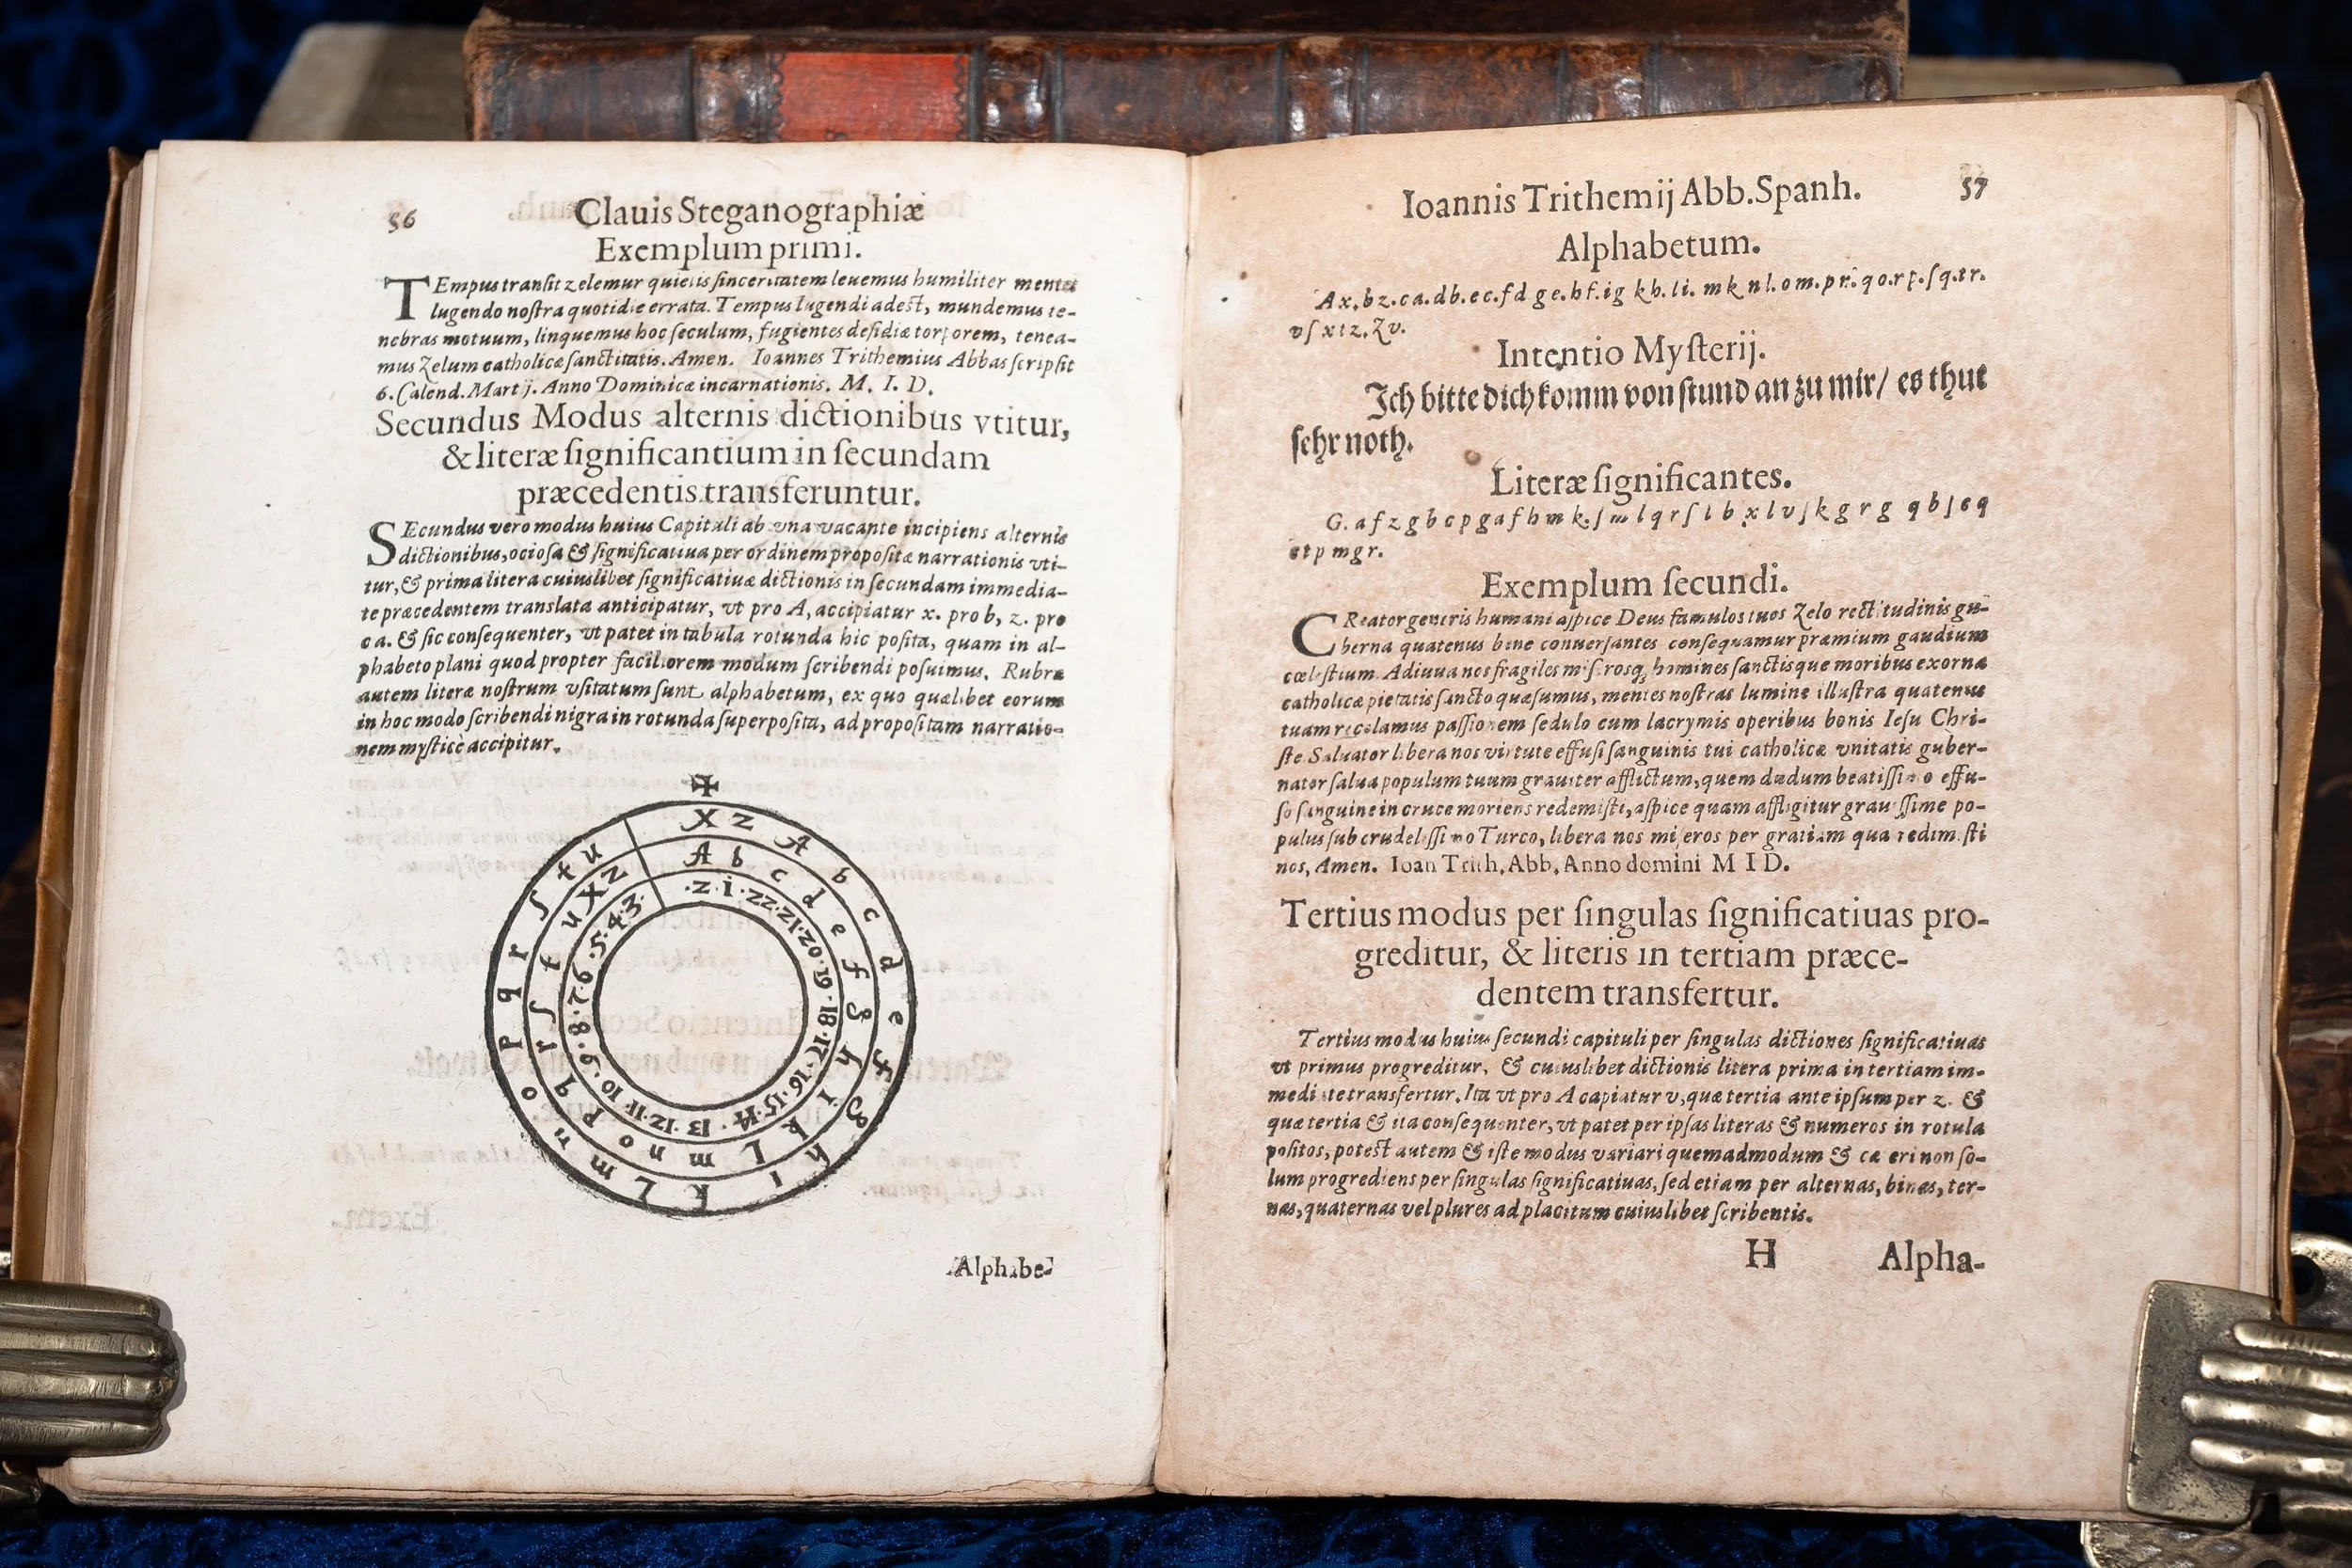 56 Clauis Steganographiæ
Exemplum primi.
TEmpus transit zelemur quietis sinceritatem leuemus humiliter mentes
lugendo nostra quotidie errata. Tempus lugendi adest, mundemus te-
nebras motuum, linquemus hoc seculum, fugientes desidiæ torporem, tenea-
mus Zelum catholicæ sanctitatis. Amen. Ioannes Trithemius Abbas scripsit
6. Calend. Martij. Anno Dominicæ incarnationis. M. I. D.
Secundus Modus alternis dictionibus vtitur,
& literæ significantium in secundam
præcedentis transferuntur.
SEcundus vero modus huius Capituli ab vna vacante incipiens alternis
dictionibus, ociosa & significatiua per ordinem propositæ narrationis vti-
tur, & prima litera cuiuslibet significatiuæ dictionis in secundam immedia-
te præcedentem translata anticipatur, vt pro A, accipiatur x. pro b, z. pro
c a. & sic consequenter, vt patet in tabula rotunda hic posita, quam in al-
phabeto plani quod propter faciliorem modum scribendi posuimus. Rubra
autem literæ nostrum vsitatum sunt alphabetum, ex quo quælibet eorum
in hoc modo scribendi nigra in rotunda superposita, ad propositam narratio-
nem mysticè accipitur.
X Z A b c d e f g h i k L m n o p q r ſ t u
A b c d e f g h i k L m n o p q r ſ t u X Z
.z.i.22.21.20.19.18.17.16.15.14.13.12.11.10.9.8.7.6.5.4.3.
Alphabe-
Ioannis Trithemij Abb. Spanh. 57
Alphabetum.
Ax. bz. ca. db. ec. fd ge. hf. ig kh. li. mk nl. om. pr. qo. rp. ſq. tr.
vſ xt z. Zv.
Intentio Mysterij.
Ich bitte dich komm von stund an zu mir/ es thut
sehr noth.
Literæ significantes.
G. a f z g b c p g a f h m k. ſ m l q r ſ l b x l v ſ k g r g q b ſ c q
c t p m g r.
Exemplum secundi.
CReator generis humani aspice Deus famulos tuos Zelo rectitudinis gu-
berna quatenus bene conuersantes consequamur præmium gaudium
cœlestium. Adiuua nos fragiles miserosq, homines sanctisque moribus exorna
catholicæ pietatis sancto quæsumus, mentes nostras lumine illustra quatenus
tuam recolamus passionem sedulo cum lacrymis operibus bonis Iesu Chri-
ste. Saluator libera nos virtute effusi sanguinis tui catholicæ vnitatis guber-
nator salua populum tuum grauiter afflictum, quem dudum beatissimo effu-
so sanguine in cruce moriens redemisti, aspice quam affligitur grauissime po-
pulus sub crudelissimo Turco, libera nos miseros per gratiam qua redimisti
nos, Amen. Ioan Trith. Abb. Anno domini M I D.
Tertius modus per singulas significatiuas pro-
greditur, & literis in tertiam præce-
dentem transfertur.
Tertius modus huius secundi capituli per singulas dictiones significatiuas
vt primus progreditur, & cuiuslibet dictionis litera prima in tertiam im-
mediate transfertur. Ita vt pro A capiatur v, quæ tertia ante ipsum per z. &
quæ tertia & ita consequenter, vt patet per ipsas literas & numeros in rotula
positos, potest autem & iste modus variari quemadmodum & cæteri non so-
lum progrediens per singulas significatiuas, sed etiam per alternas, binas, ter-
nas, quaternas vel plures ad placitum cuiuslibet scribentis.
H Alpha-